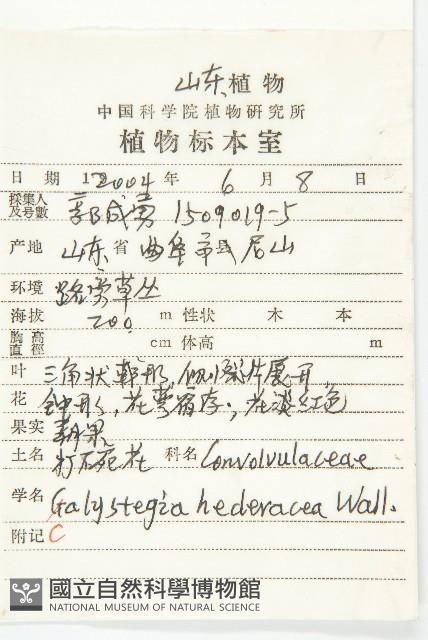 山东植物
中国科学院植物研究所
植物标本室
日期 2004年 6月 8日
採集人及号數 郭成勇 1509019-5
产地 山东省曲阜市县 尼山
环境 路旁草丛
海拔 200 m 性状 木 本
胸高直徑 cm 体高 m
叶 三角状卵形,侧裂片展开,
花 钟形,花萼宿存;花淡红色
果实 蒴果
土名 打不死花 科名 Convolvulaceae
学名 Galystegia hederacea Wall.
附记 C
國立自然科學博物館
NATIONAL MUSEUM OF NATURAL SCIENCE